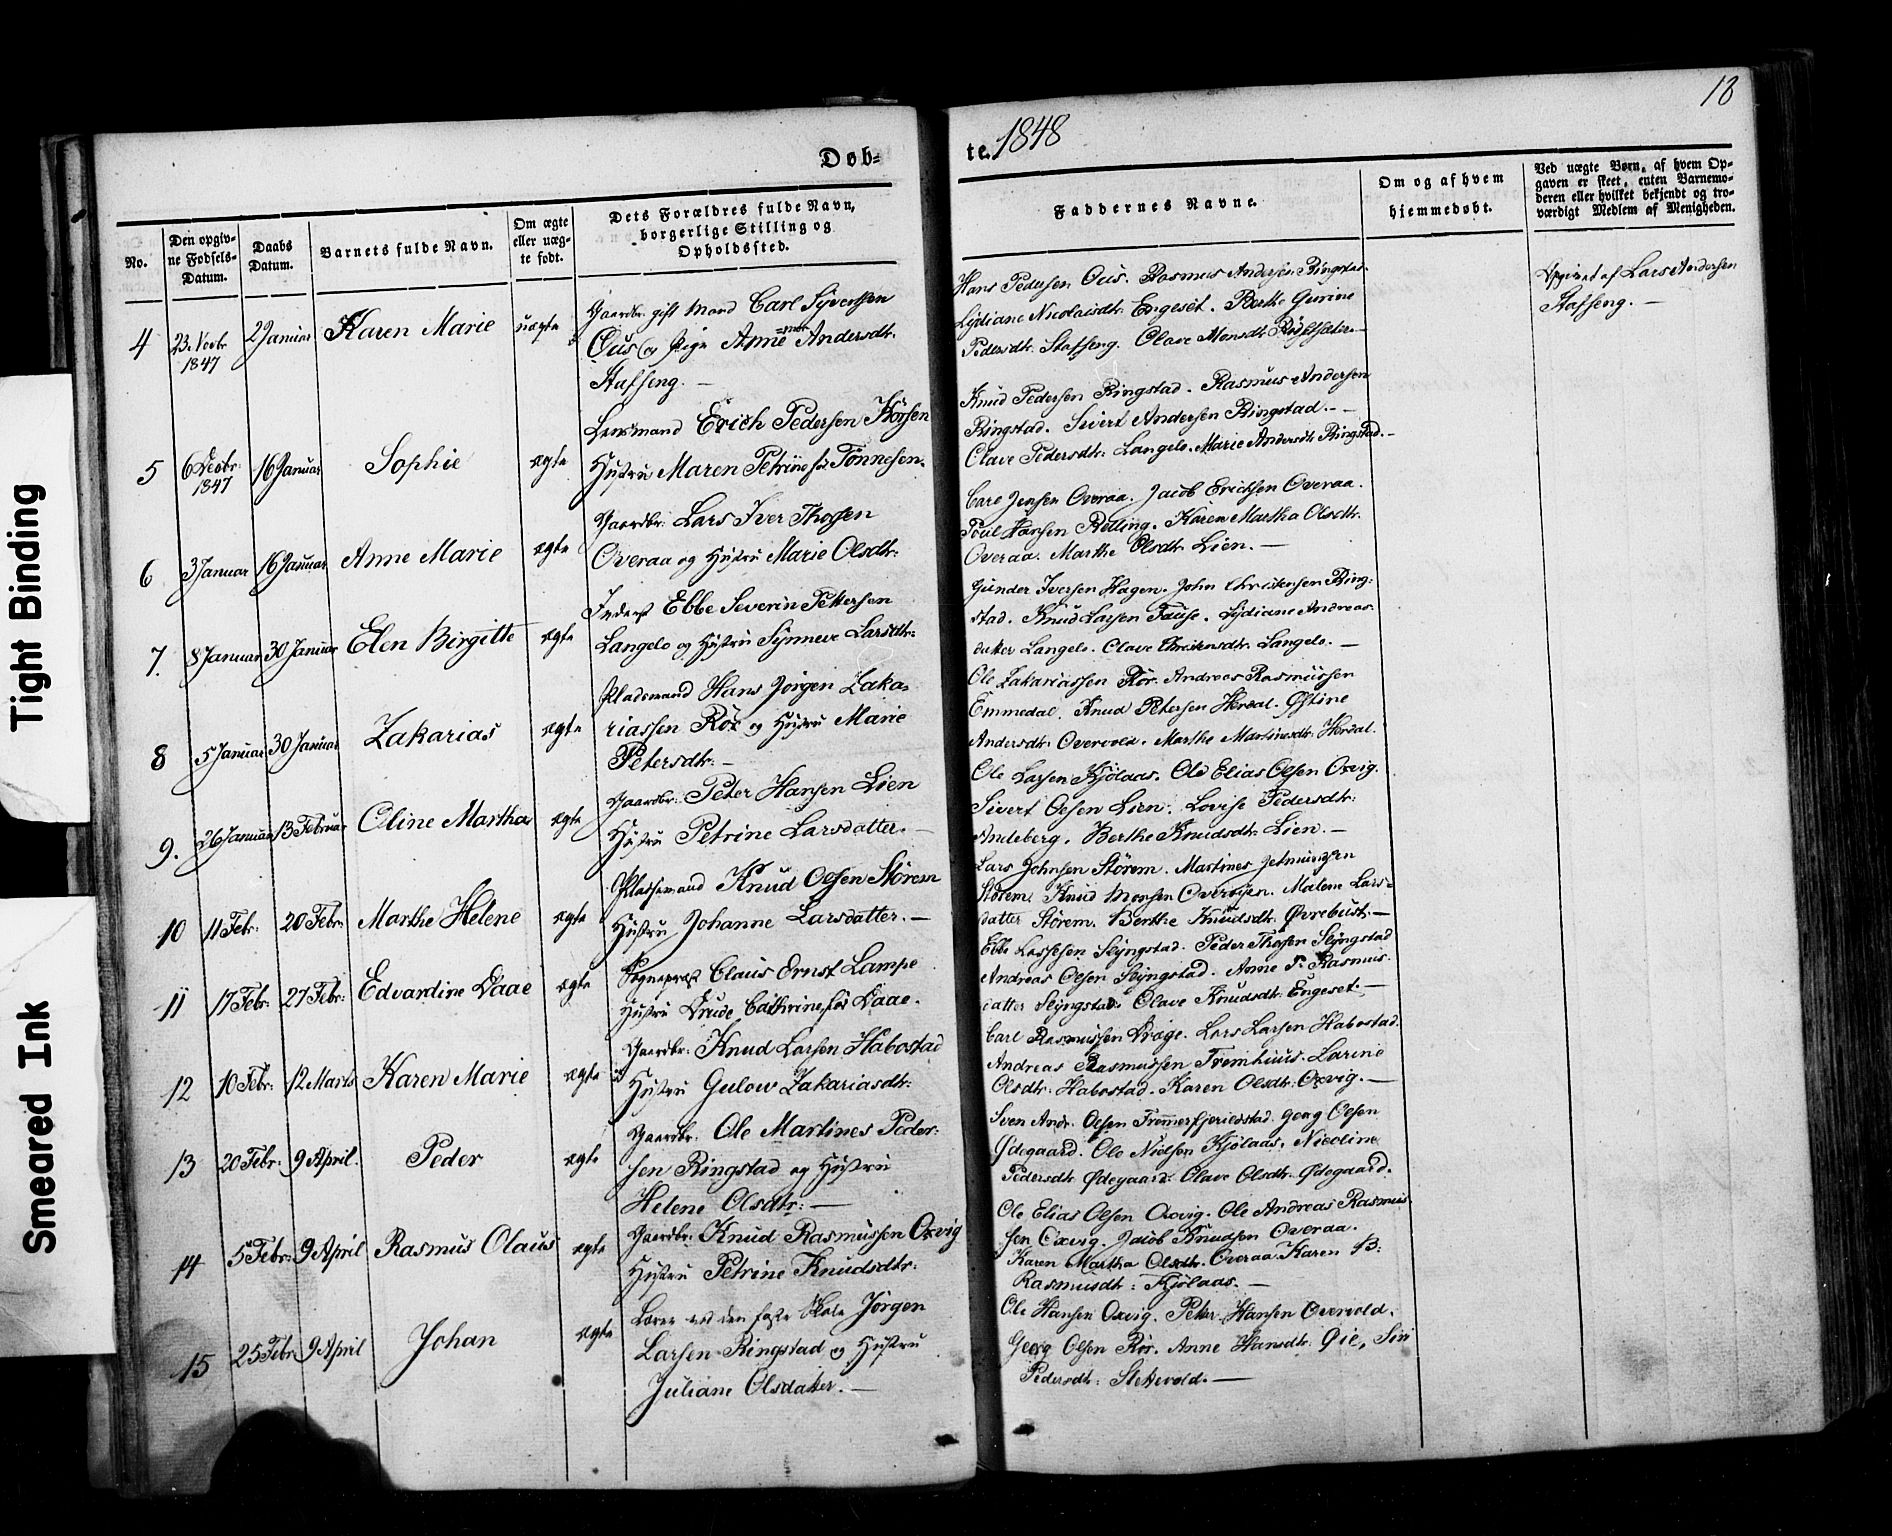 18
Døb-
te. 1848
No.
Den opgiv-
ne Fødsels-
Datum.
Daabs
Datum.
Barnets fulde Navn.
Om ægte
eller uæg-
te født.
Dets Forældres fulde Navn,
borgerlige Stilling og
Opholdssted.
Faddernes Navne.
Om og af hvem
hjemmedøbt.
Ved uægte Børn, af hvem Op-
gaven er skeet, enten Barnemo-
deren eller hvilket bekjendt og tro-
værdigt Medlem af Menigheden.
4
23. Novbr
1847
2 Januar
Karen Marie
uægte
Gaardbr. gift Mand Carl Syversen
Ous og Pige Anne Andersdtr.
Stafseng. —
Hans Pedersen Ous. Rasmus Andersen Ringstad.
Lydiane Nicolaidtr. Engeset. Berthe Gurine
Pedersdtr. Stafseng. Olave Monsdtr.
Opgivet af Lars Andersen
Stafseng. —
5
6 Decbr.
1847
16 Januar
Sophie
ægte
Lensmand Erich Pedersen
Hustru Maren Petrine f. Tønnesen.
Knud Pedersen Ringstad. Rasmus Andersen
Ringstad. Sivert Andersen Ringstad. —
Olave Pedersdtr. Langelo. Marie Andersdtr. Ringstad. —
6
3 Januar
16 Januar
Anne Marie
ægte
Gaardbr: Lars Iver Thossen
Overaa og Hustru Marie Olsdtr:
Carl Jensen Overaa. Jacob Ericksen Overaa.
Poul Hansen Rølling. Karen Martha Olsdtr.
Overaa. Marthe Olsdtr. Lien. —
7.
8 Januar
30 Januar
Elen Birgitte
ægte
Inderst Ebbe Severin Pettersen
Langelo og Hustru Synneve Larsdtr:
Gunder Iversen Hagen. John Christensen Ring-
stad. Knud Larsen Fause. Lydiane Andreas-
datter Langelo. Olave Christensdtr. Langelo. —
8
5 Januar
30 Januar
Zakarias
ægte
Pladsmand Hans Jørgen Zaka-
riassen Rør og Hustru Marie
Petersdtr: —
Ole Zakariassen Rør. Andreas Rasmussen
Emmedal. Knud Petersen Herdal. Østine
Andersdtr. Overvold. Marthe Martinusdtr. Herdal.
9.
26 Januar
13 Februar
Oline Martha
ægte
Gaardbr: Peter Hansen Lien
Hustru Petrine Larsdatter. —
Ole Larsen Kjølaas. Ole Elias Olsen Oxvig.
Sivert Olsen Lien. Lovise Pedersdtr:
Andeberg. Berthe Knudsdtr. Lien. —
10
11 Febr:
20 Febr:
Marthe Helene
ægte
Pladsemand Knud Olsen Størem
Hustru Johanne Larsdatter. —
Lars Johnsen Størem. Martines Jetmundsen
Størem. Knud Monsen Overøien. Malene Lars-
datter Størem. Berthe Knudsdtr. Øvrebust. —
11
17 Febr:
27 Febr:
Edvardine Daae
ægte
Sogneprest Claus Ernst Lampe
Hustru Drude Cathrine, før Daae.
Ebbe Lassesen Slyngstad. Peder Thosen Slyngstad
Andreas Olsen Slyngstad. Anne P. Rasmus-
datter Slyngstad. Olave Knudsdtr. Engeset. —
12
10 Febr:
12 Marts
Karen Marie
ægte
Gaardbr: Knud Larsen Habostad
Hustru Gulow Zakariasdtr:
Carl Rasmussen Drage. Lars Larsen Habostad.
Andreas Rasmussen Fremhuus. Larine
Olsdtr. Habostad. Karen Olsdtr. Oxvig. —
13
20 Febr:
9 April.
Peder
ægte
Gaardbr. Ole Martines Peder-
sen Ringstad og Hustru
Helene Olsdtr: —
Sven Andr. Olsen Georg Olsen
Ødegaard. Ole Nielsen Kjølaas. Nicoline
Pedersdtr. Ødegaard. Olave Olsdtr. Ødegaard.
14
5 Febr:
9 April
Rasmus Olaus
ægte
Gaardbr. Knud Rasmussen Oxvig
Hustru Petrine Knudsdtr.
Ole Elias Olsen Oxvig. Ole Andreas Rasmus-
sen Oxvig. Jacob Knudsen Overaa.
Karen Martha Olsdtr. Overaa. Karen B.
Rasmusdtr: Kjølaas. —
15
25 Febr:
9 April
Johan
ægte
Lærer ved den faste Skole Jørgen
Larsen Ringstad og Hustru
Juliane Olsdatter. —
Ole Hansen Oxvig. Peter Hansen Overvold.
Georg Olsen Rør. Anne Hansdtr. Gie, Siri
Pedersdtr: Stettevold. —
Tight Binding
Smeared Ink